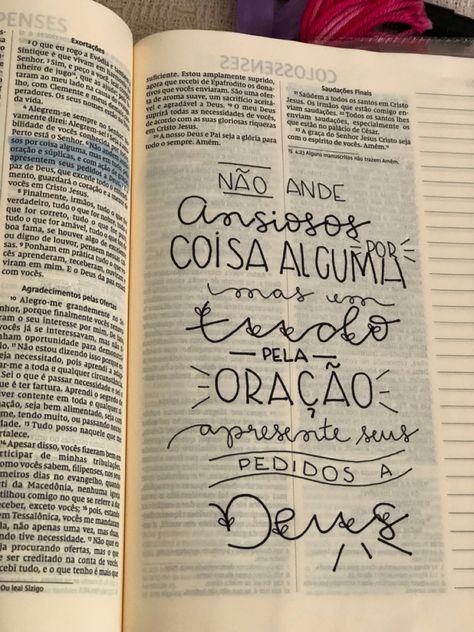 PENSES
Exortações
² O que eu rogo a Evódia
Síntique é que vivam em
Senhor. ³ Sim, e peço a você
nheiro de jugo", que as ajud
taram ao meu lado na causa do
lho, com Clemente e meus dem
peradores. Os seus nomes estão
da vida.
⁴ Alegrem-se sempre no Senhor
vamente direi: Alegrem-se!
Perto está o Senhor. ⁶ Não
sos por coisa alguma, mas em
oração e súplicas, e com ação de
apresentem seus pedidos a
paz de Deus, que excede todo
mento, guardará o coração e a men
vocês em Cristo Jesus.
⁸ Finalmente, irmãos, tudo o que
verdadeiro, tudo o que for nobre,
que for correto, tudo o que for
tudo o que for amável, tudo o que for
boa fama, se houver algo de
ou digno de louvor, pensem ness
as. ⁹ Ponham em prática tudo o que
cês aprenderam, receberam, ouvi
viram em mim. E o Deus da paz esta
com vocês.
Agradecimentos pelas Ofertas
¹⁰ Alegro-me grandemente no
nhor, porque finalmente vocês
ram o seu interesse por mim. De fato
vocês já se interessavam, mas não
nham oportunidade para demonst
¹¹ Não estou dizendo isso porque
eja necessitado, pois aprendi a
ar-me a toda e qualquer circunstância
Sei o que é passar necessidade e sei
que é ter fartura. Aprendi o segredo
viver contente em toda e qualquer
tuação, seja bem alimentado, seja com
me, tendo muito, ou passando neces
dade. ¹³ Tudo posso naquele que me
ortalece.
¹⁴ Apesar disso, vocês fizeram bem em
articipar de minhas tribulações.
omo vocês sabem, filipenses, nos seus
imeiros dias no evangelho, quando
rti da Macedônia, nenhuma igreja
tilhou comigo no que se refere a dar
eceber, exceto vocês; ¹⁶ pois, estando
em Tessalônica, vocês me mandaram
da, não apenas uma vez, mas duas,
ndo tive necessidade. ¹⁷ Não que eu
ja procurando ofertas, mas o que
e ser creditado na conta de vocês.
cebi tudo, e o que tenho é mais que
Ou leal Sízigo
suficiente. Estou amplamente suprido,
agora que recebi de Epafrodito os dona-
tivos que vocês enviaram. São uma ofer-
ta de aroma suave, um sacrifício aceitá-
vel e agradável a Deus. ¹⁹ O meu Deus
suprirá todas as necessidades de vocês,
de acordo com as suas gloriosas riquezas
em Cristo Jesus.
²⁰ A nosso Deus e Pai seja a glória para
todo o sempre. Amém.
COLOSSENSES
Saudações Finais
²¹ Saúdem a todos os santos em Cristo
Jesus. Os irmãos que estão comigo
enviam saudações. ²² Todos os santos lhes
enviam saudações, especialmente os
que estão no palácio de César.
²³ A graça do Senhor Jesus Cristo seja
com o espírito de vocês. Amém.
4.23 Alguns manuscritos não trazem Amém.
NÃO ANDE
Ansiosos
POR
COISA ALGUMA
mas em
tudo
PELA
ORAÇÃO
apresente seus
PEDIDOS A
Deus